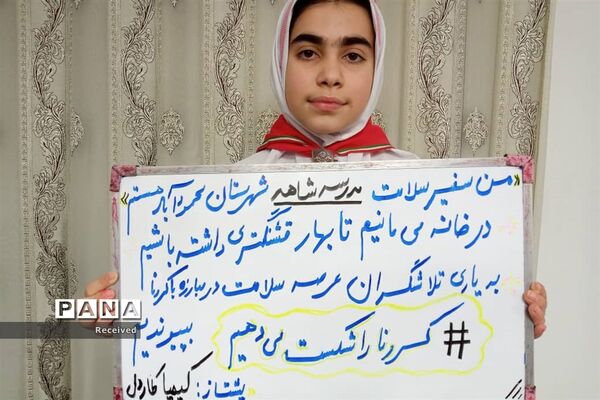 «من سفیر سلامت مدرسه شاهد شهرستان محمودآباد هستم»
در خانه می مانیم تا بهار قشنگتری داشته باشیم
به یاری تلاشگران عرصه سلامت در مبارزه با کرونا
بپیوندیم
# کرونا را شکست می دهیم
پیشتاز: کیمیا
PANA
Received